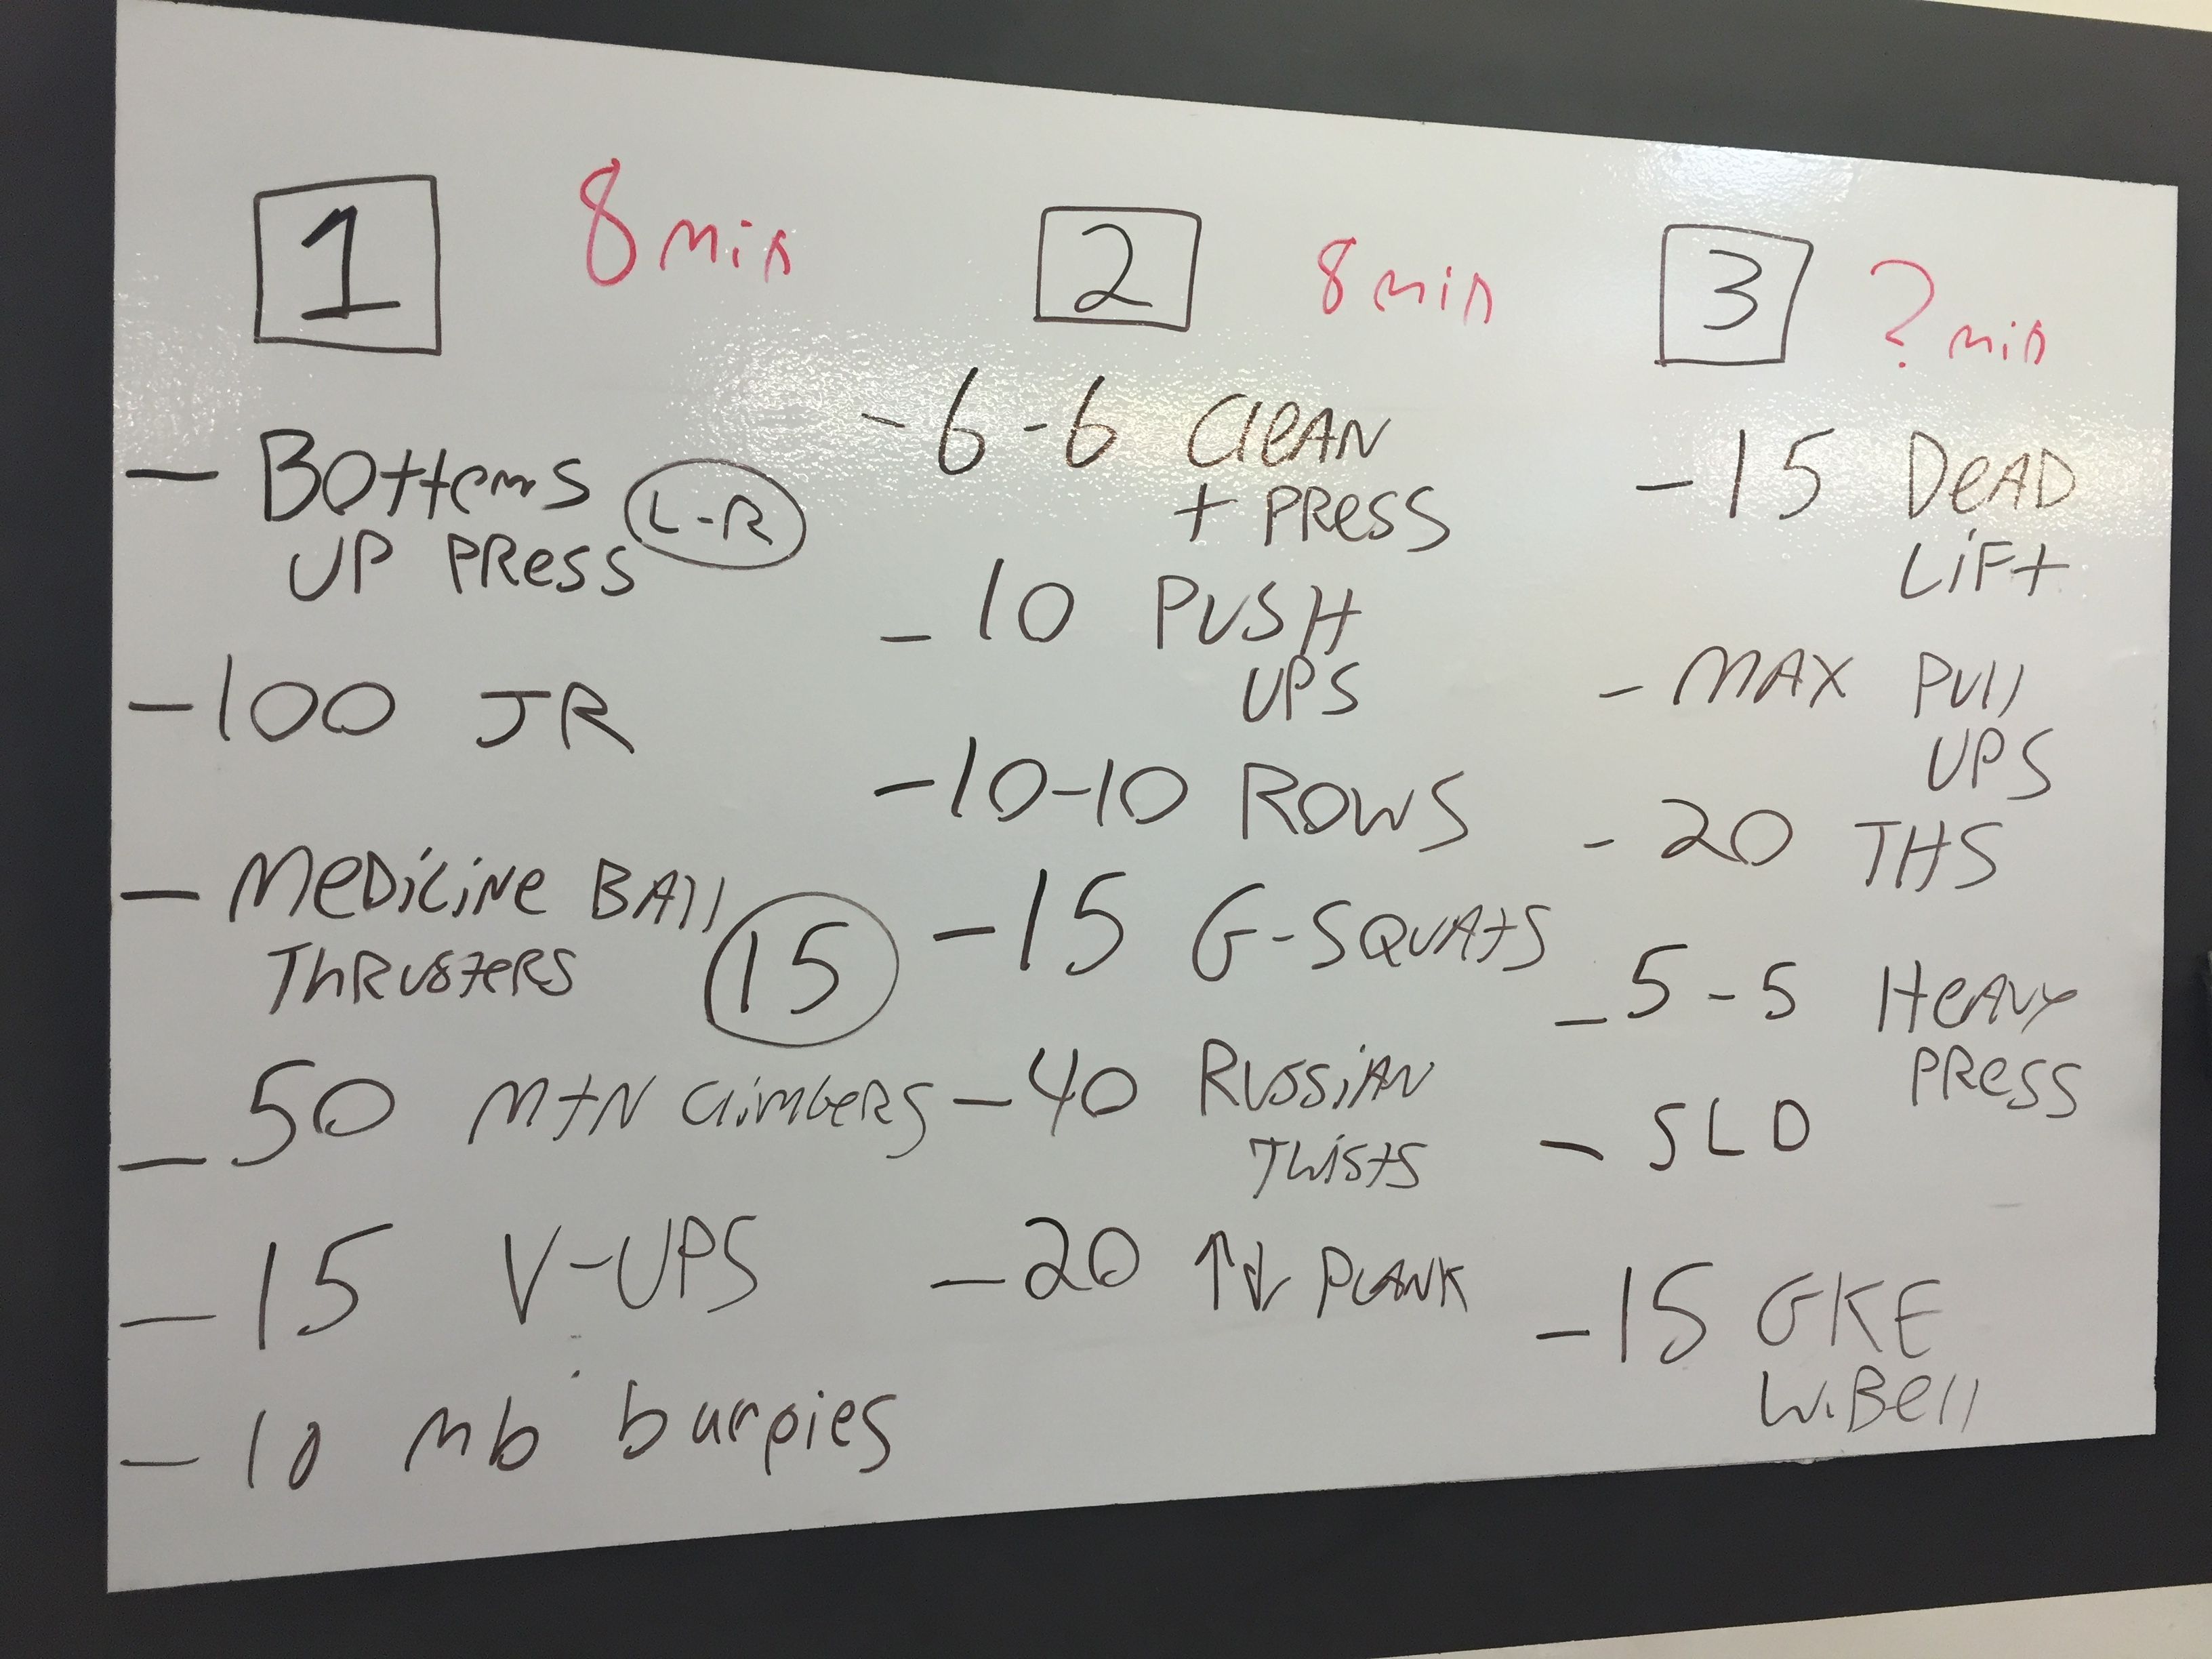 1 8 min
- Bottoms
UP PRess L-R
- 100 JR
- MeDiCiNe BAll
ThRusteRS 15
- 50 MtN ClimbeRS
- 15 V-UPS
- 10 mb burpies
2 8 min
- 6-6 CleAN
+ PRess
- 10 PUSH
UPS
- 10-10 ROWS
- 15 G-SQUAtS
- 40 RussiAN
Twists
- 20 ↑↓ PLANK
3 ? min
- 15 DeAD
LiFt
- MAX PUll
UPS
- 20 THS
- 5-5 HeAVY
PRess
- SLD
- 15 GKE
W.Bell